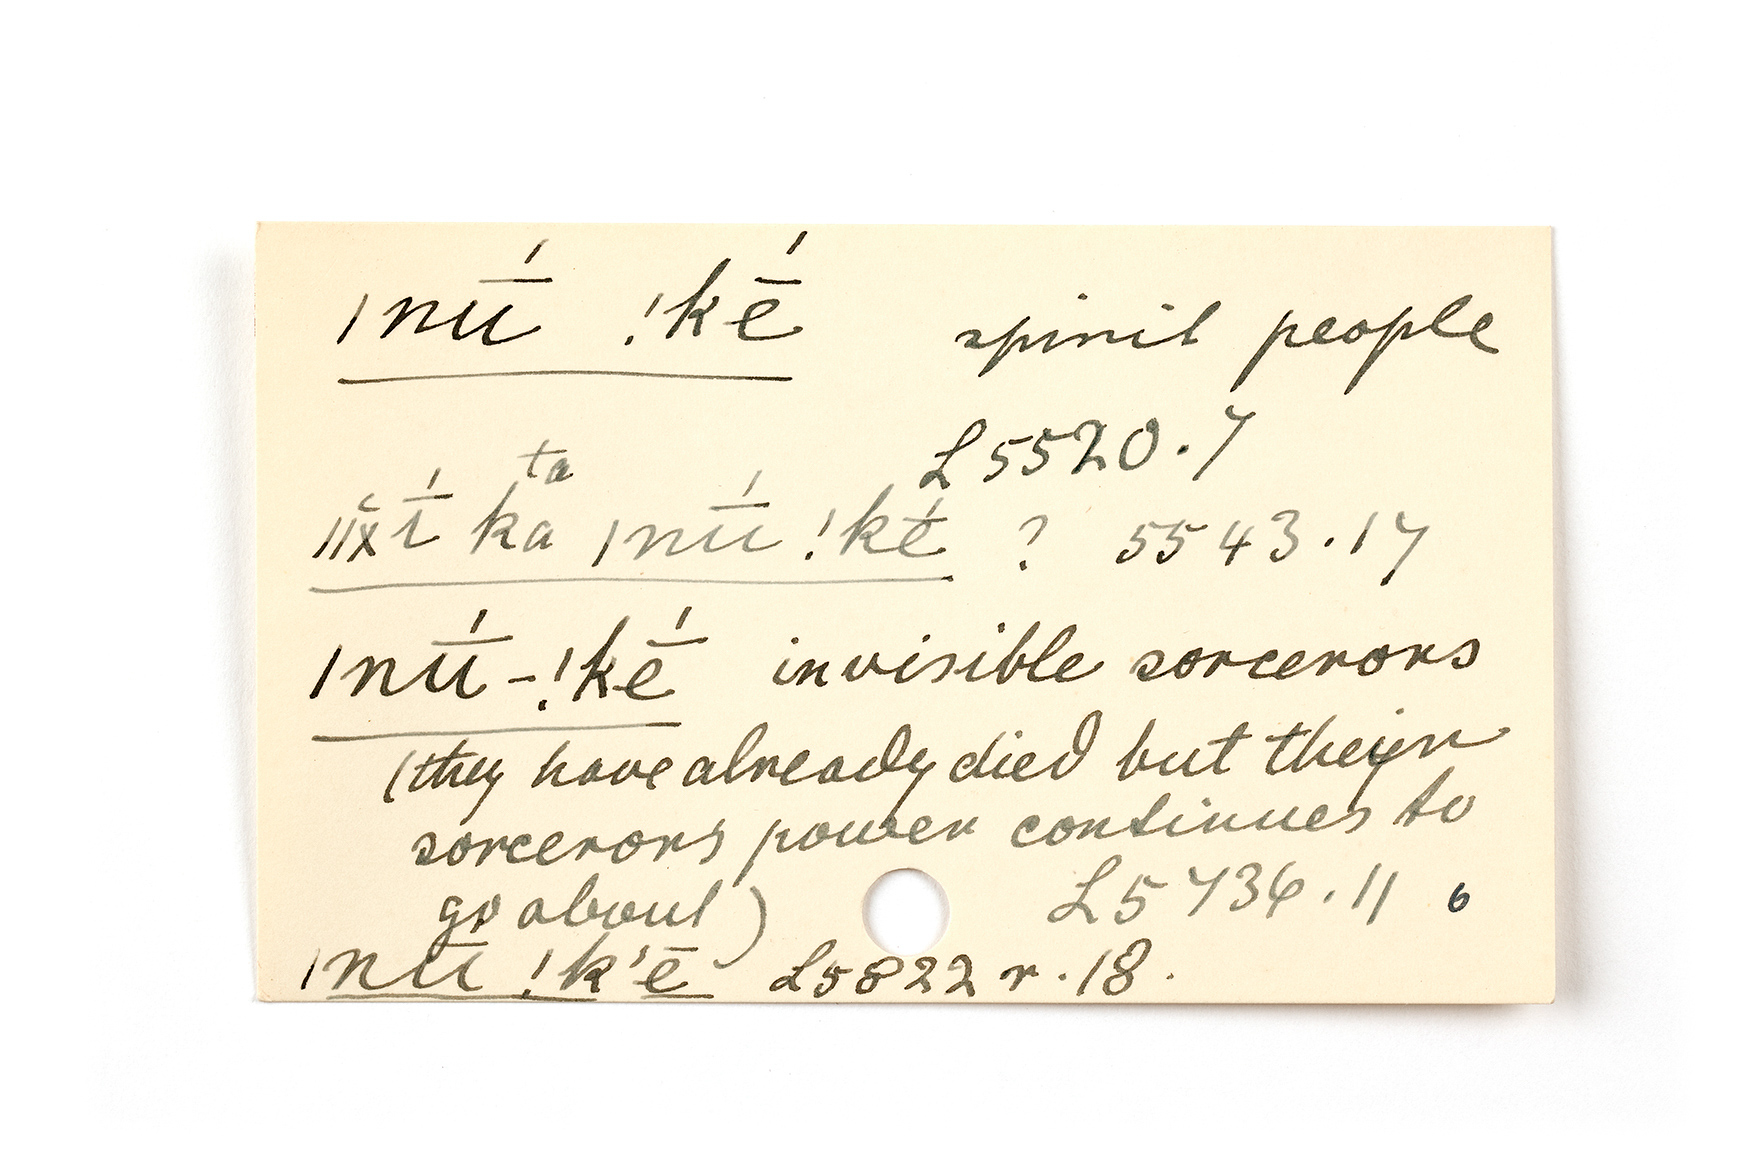 |nū́ !kḗ spirit people
L5520.7
ta
||x̌ī́ ka |nū́ !kḗ ? 5543.17
|nū́-!kḗ invisible sorcerors
(they have already died but their
sorcerors power continues to
go about) L5736.11 6
|nū !k'ē L5822 r.18.